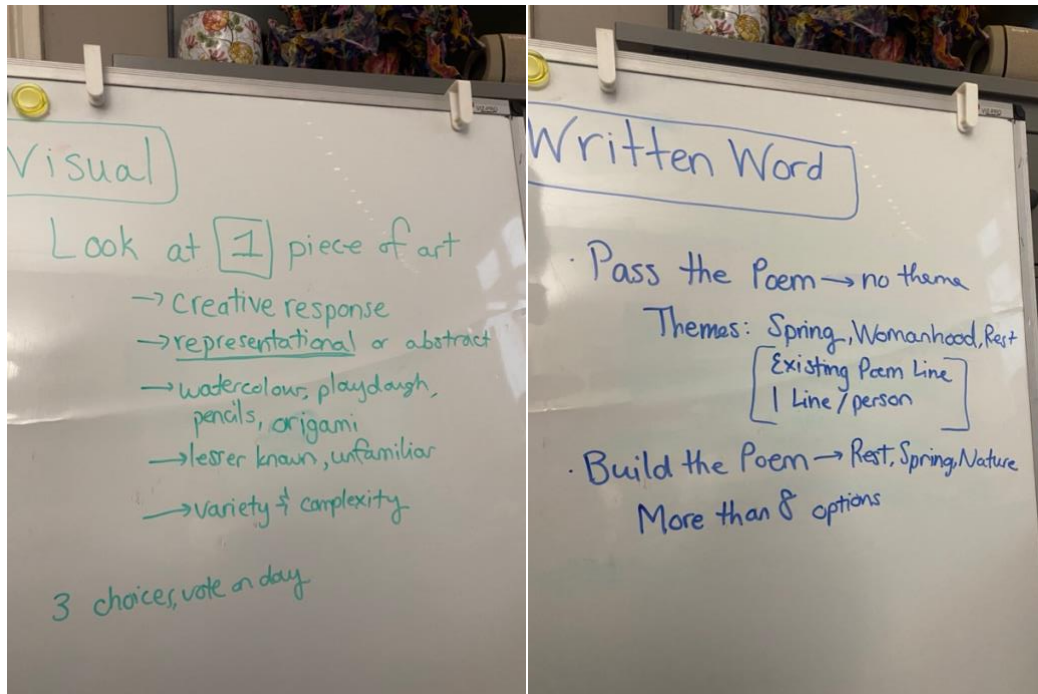 Visual
Look at 1 piece of art
→ creative response
→ representational or abstract
→ watercolour, playdough,
pencils, origami
→ lesser known, unfamiliar
→ variety & complexity
3 choices, vote on day
Written Word
· Pass the Poem → no theme
Themes: Spring, Womanhood, Rest
Existing Poem Line
1 Line / person
· Build the Poem → Rest, Spring, Nature
More than 8 options